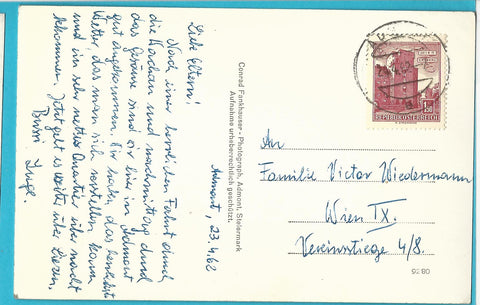 Admont, 23.4.62
Liebe Eltern!
Nach einer herrlichen Fahrt durch
die Wachau und nachmittag durch
das Gesäuse sind wir hier in Admont
gut angekommen. Wir hatten das herrlichste
Wetter, das man sich vorstellen kann
und ein sehr nettes Quartier über nacht
bekommen. Jetzt geht es weiter über Liezen,
Bussi Inge.
Conrad Fankhauser - Photograph, Admont, Steiermark
Aufnahme urheberrechtlich geschützt.
1.50
REPUBLIK ÖSTERREICH
An
Familie Victor Wiedermann
Wien IX.
Vereinsstiege 4/8.